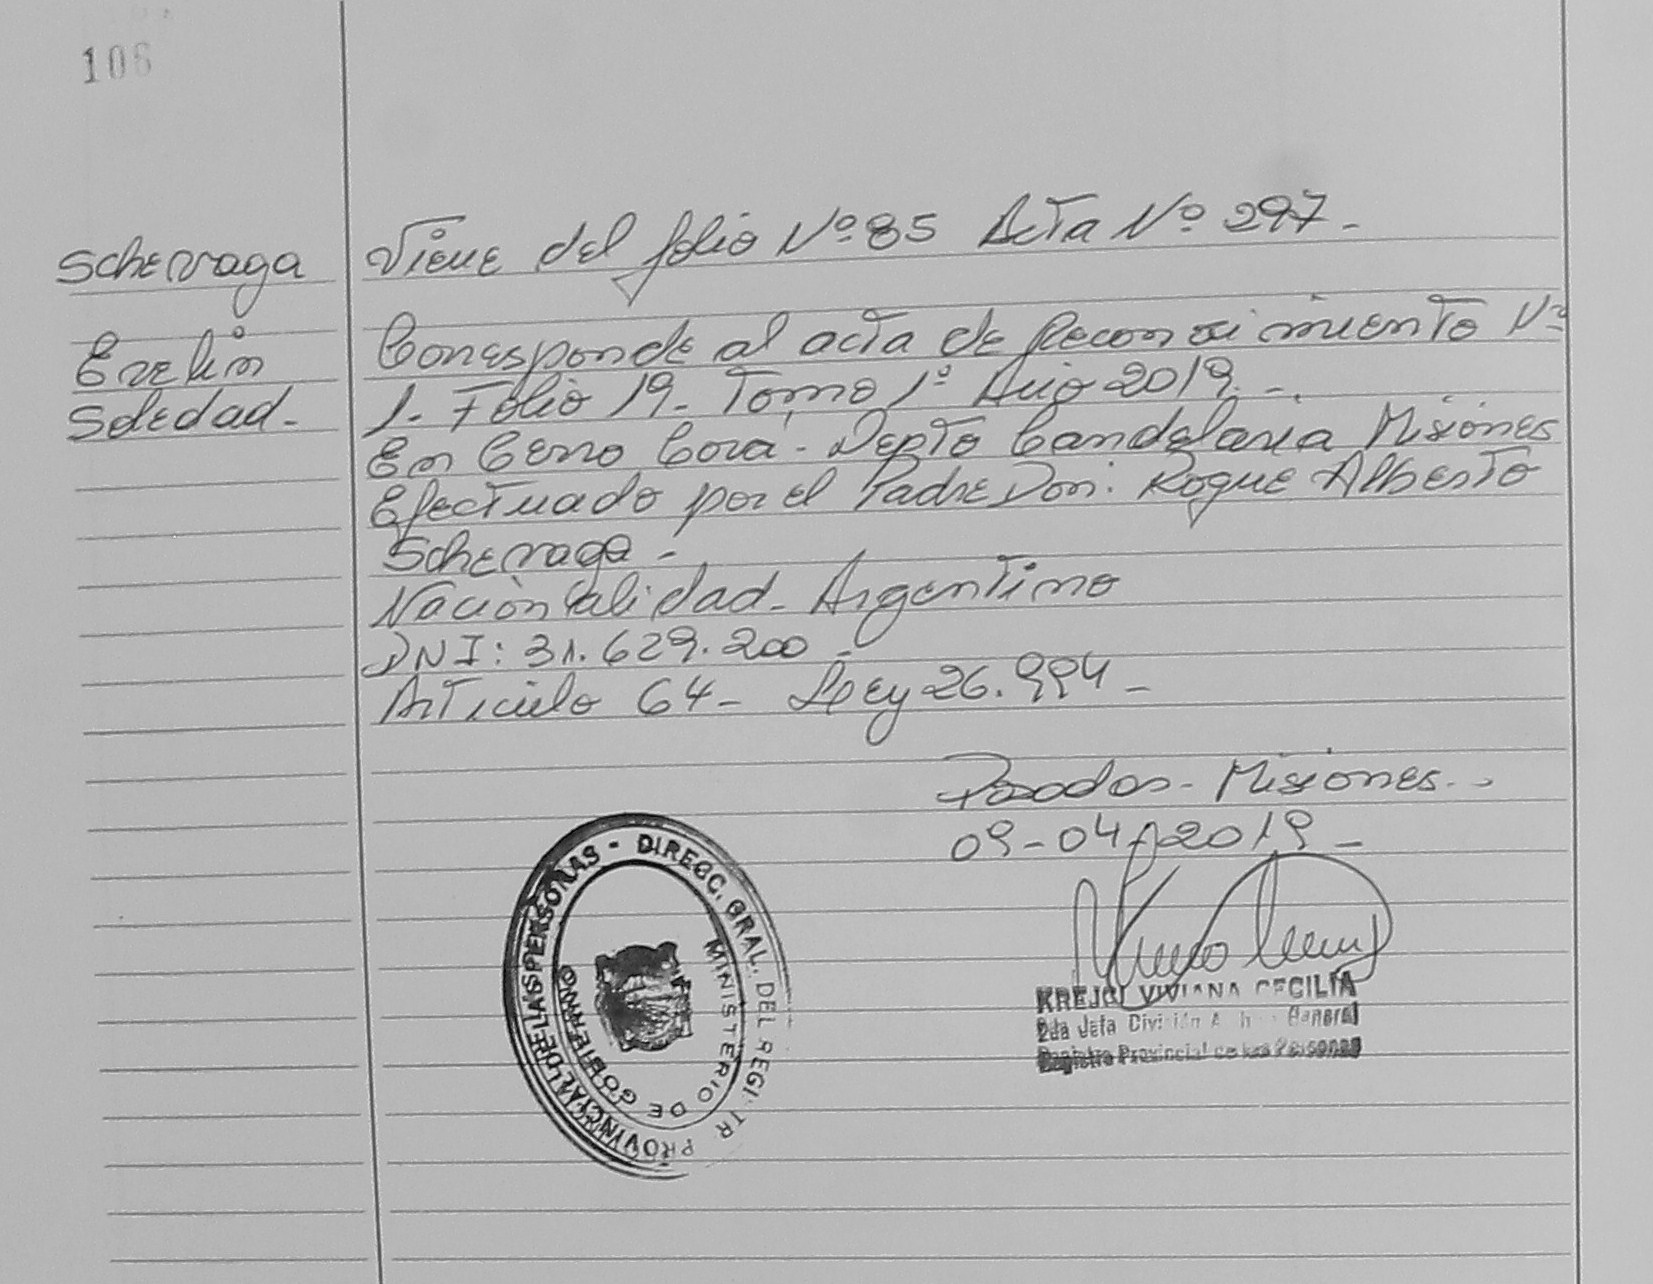 106
Scherraga
Evelin
Soledad.-
Viene del folio Nº 85 Acta Nº 297.-
Corresponde al acta de Reconosimiento Nº
1.- Folio 19.- Tomo 1º Año 2019.-
En Cerro Corá - Depto Candelaria Misiones
Efectuado por el Padre Don: Roque Alberto
Scherraga -
Nacionalidad - Argentino
DNI: 31.629.200 -
Articulo 64 - Ley 26.994 -
Posadas - Misiones. -
09-04-2019 -
DIRECC. GRAL. DEL REGITR PROVINCIAL DE LAS PERSONAS -
MINISTERIO DE GOBIERNO
KREJCI VIVIANA CECILIA
2da Jefa División General
Registro Provincial de las Personas